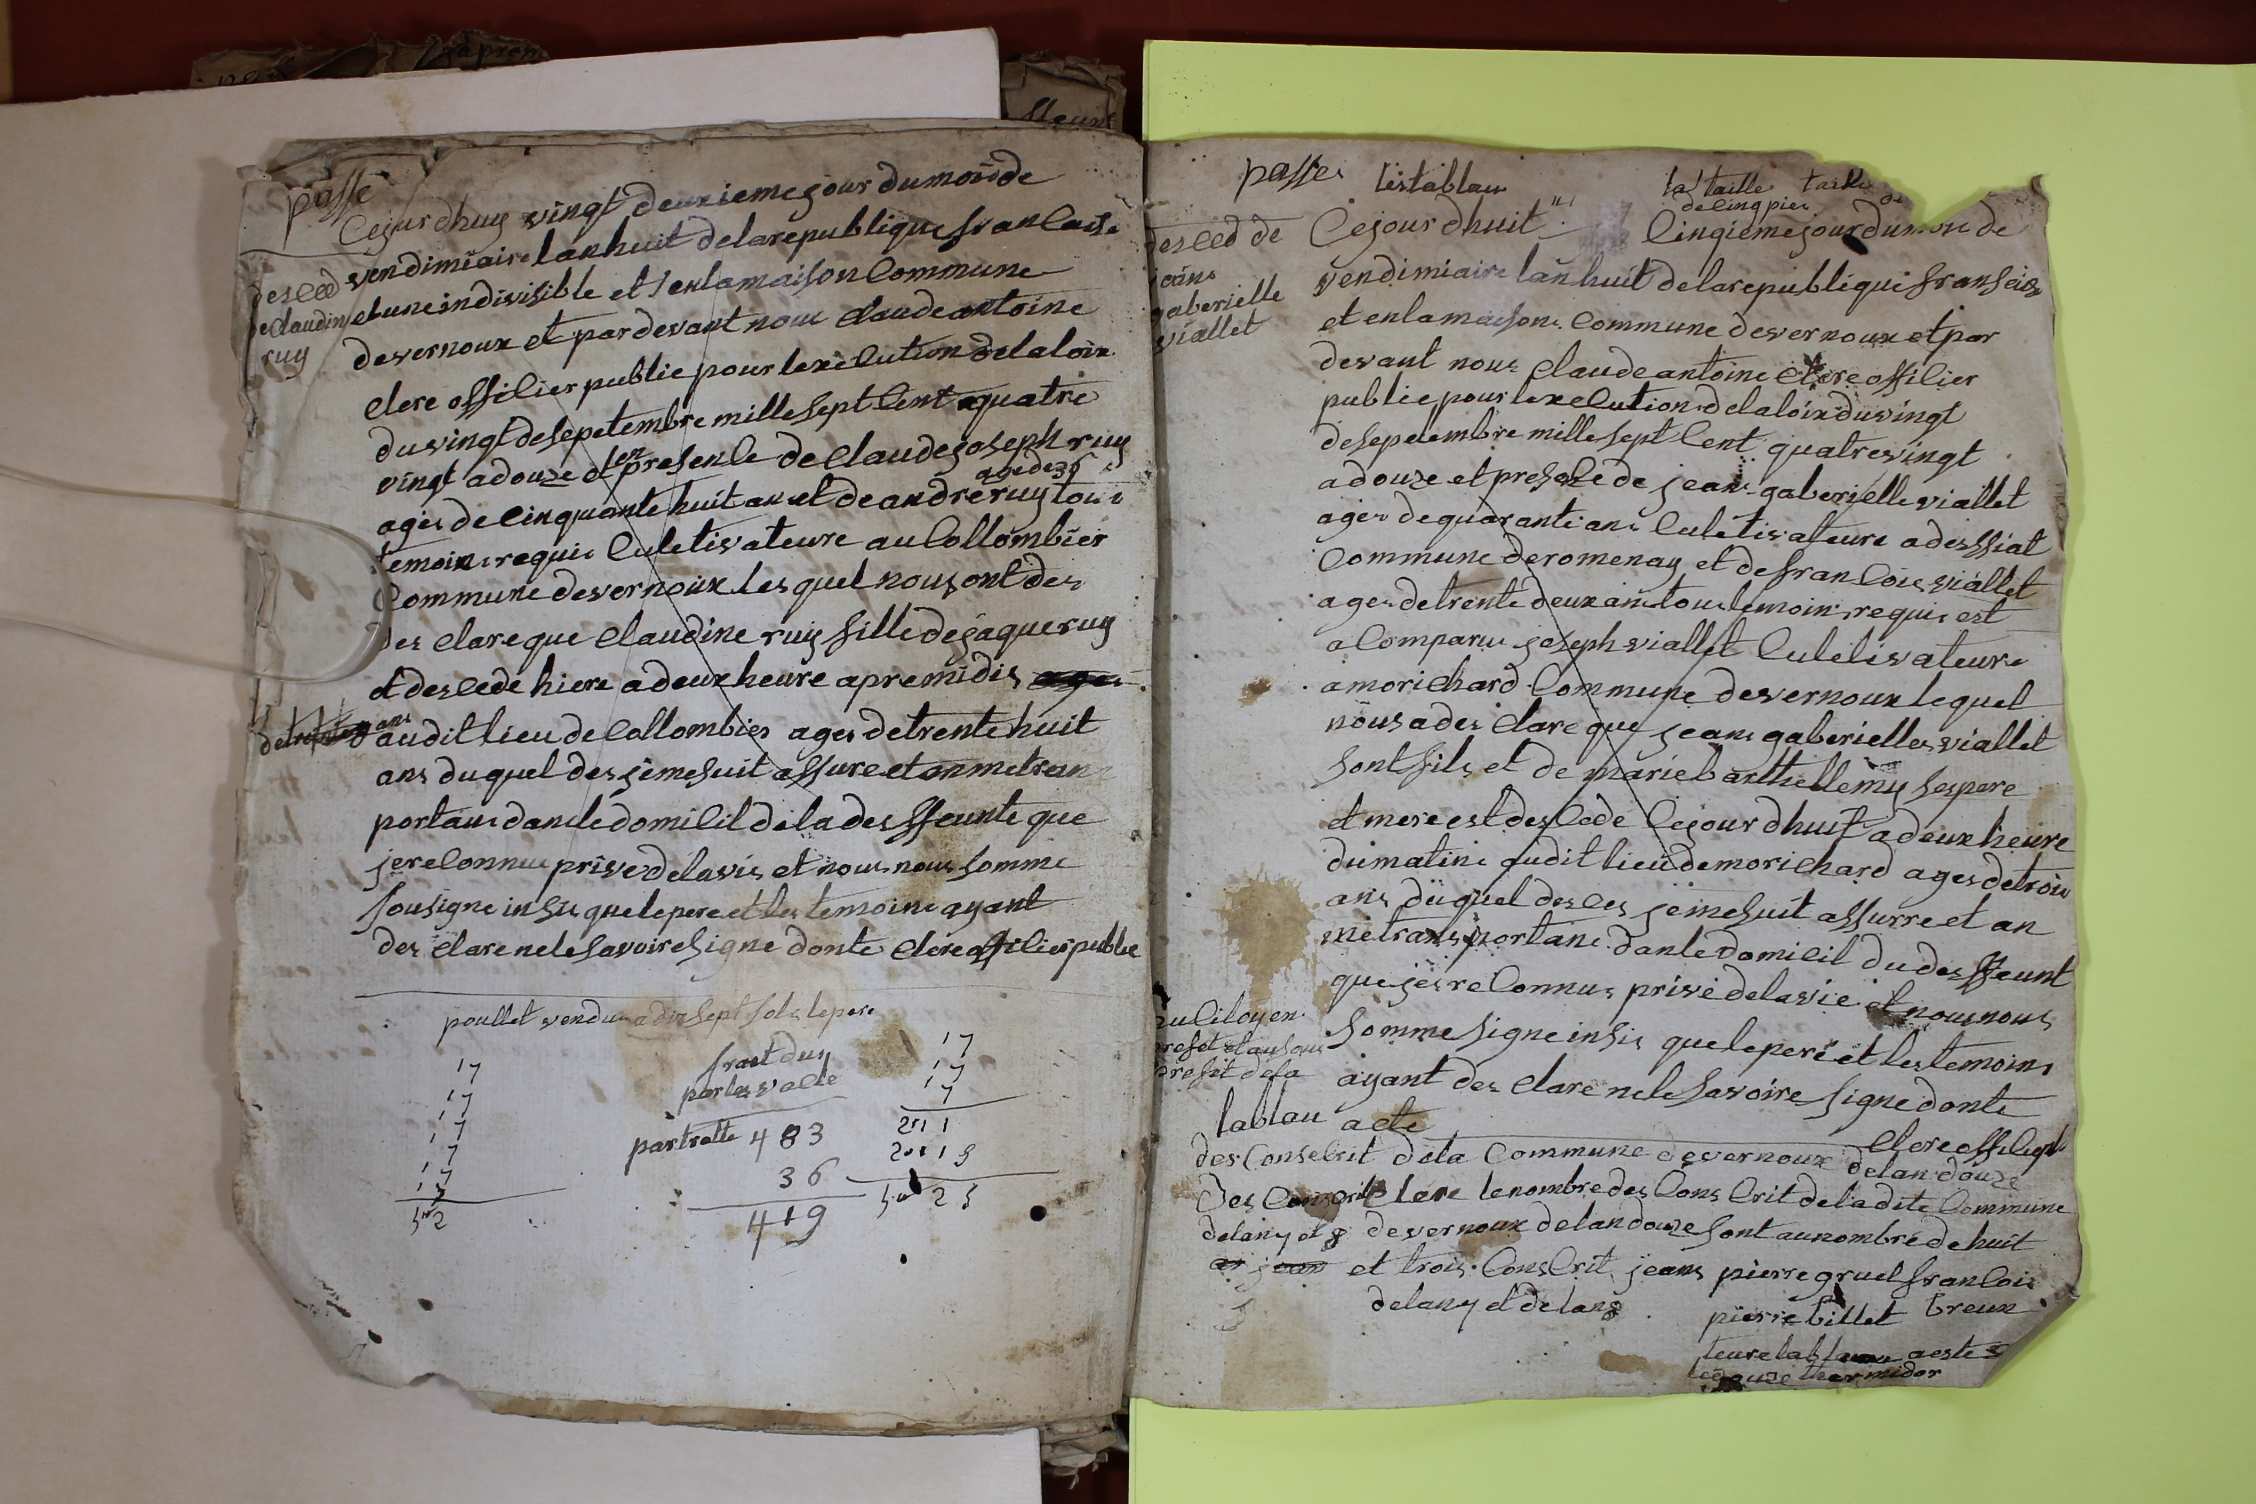 passé
Cejourdhuy vingt deuxieme jour du mois de
vendimiaire lan huit delarepublique francaise
et une indivisible et enlamaison Commune
des Ced
de Claudine
ruy
devernoux et pardevant nous Claude antoine
Clere offilier public pour lexeCution delaloix
du vingt desepetembre mille sept Cent quatre
vingt adouze et en presenCe de Claude joseph ruy
agés de Cinquante huit an et de andré ruy agé de 35 tous
temoins requis Culetivateure au Collombier
Commune devernoux Les quel nous ont des
des Clare que Claudine ruy fille dejaque ruy
et desCedé hiere a deux heure apremidis
audit lieu de Collombier ages detrente huit
ans duquel des jemesuit assure et anmetrans
portans danledomiCil deladesffeunte que
jereConnue privé delavie et nous nous somme
sousigne insis quelepere et les temoins ayant
des Clare nelesavoire signe donte Clere offilier public
poullet vendu a dix sept sols lepere
17
17
17
17
17
17
5 2
frait duy
par les valle
partrette 483
36
419
17
17
17
passes
les tablau
la taille taille
de Cinq pies
desCed de
jeans
gaberielle
viallet
Cejourdhuit Cinqiemejour dumois de
vendimiaire lan huit delarepublique franseise
et enlamaison Commune devernoux et par
devant nous Claude antoine Clere offilier
public pour lexeCution delaloix du vingt
desepetembre mille sept Cent quatrevingt
adouze et preseCe de jeans gaberielle viallet
ages de quarante ans Culetivateure a desssiat
Commune deromenay et de franCois viallet
ages detrente deux ans tous temoins requis est
a Comparue joseph viallet Culetivateure
amorichard Commune devernoux lequel
nous a des Clare que jeans gaberielles viallet
sont fils et de marie barthellemy ses pere
et mere est desCedé Cejourdhuit a deux heure
du matin audit lieu demorichard ages detrois
ans duquel desCes jemesuit assurre et an
metransportans danledomiCil du desffeunt
que jesreConnus privé delavie et nous nous
somme signe insis quelepere et les temoins
ayant des Clare nelesavoire signe donte
acte
Clere offili
au Citoyen
tablau
des ConseCrit dela Commune devernoux delan douze
des ConsCrit Clere lenombre des ConsCrit deladite Commune
delan 7 et 8 devernoux delandouze sont aunombre de huit
et trois ConsCrit jeans pierre gruel franCois
delan 7 et delan 8 pierre billet breux
leure tablaux aeste
ledouze thermidor